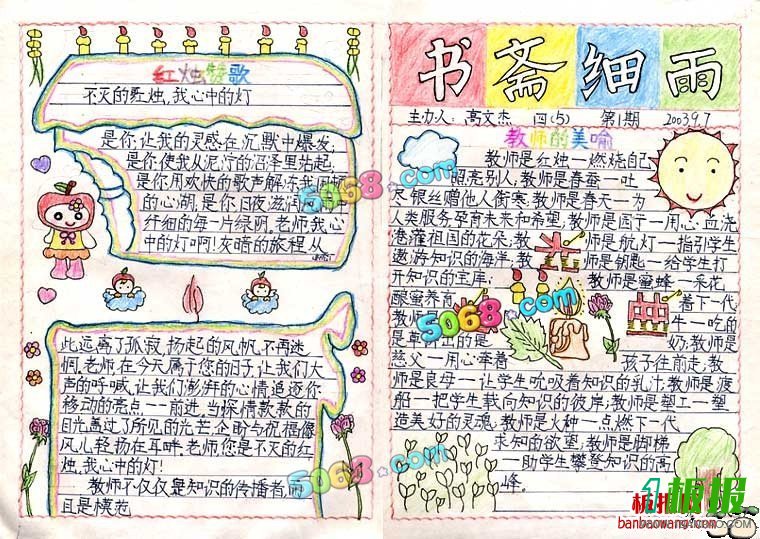 红烛颂歌
不灭的红烛,我心中的灯
是你,让我的灵感在沉默中爆发;
是你使我从泥泞的沼泽里站起;
是你用欢快的歌声解冻我
的心湖,是你日夜滋润
纤细的每一片绿阴,老师,我心
中的灯啊!灰暗的旅程,从
此远离了孤寂,扬起的风帆,不再迷
惘。老师,在今天属于您的日子,让我们大
声的呼喊,让我们澎湃的心情追逐你
移动的亮点——前进,当深情款款的
目光,盖过了所见的光芒企盼与祝福像
风儿轻扬在耳畔,老师,您是不灭的红
烛,我心中的灯!
教师不仅仅是知识的传播者,而
且是模范
书斋细雨
主办人:高文杰 四(5) 第1期 2003.9.7
教师的美喻
教师是红烛—燃烧自己
照亮别人;教师是春蚕—吐
尽银丝赠他人御寒;教师是春天—为
人类服务,孕育未来和希望;教师是园丁—用心血浇
灌祖国的花朵;教师是航灯—指引学生
遨游知识的海洋;教师是钥匙—给学生打
开知识的宝库;教师是蜜蜂—采花
酿蜜养育着下代
教师牛—吃的
是草奶;教师是
慈父—用心牵着孩子往前走;教
师是良母—让学生吮吸着知识的乳汁;教师是渡
船—把学生载向知识的彼岸;教师是塑工—塑
造美好的灵魂;教师是火种—点燃下一代
求知的欲望;教师是脚梯
—助学生攀登知识的高
峰。
5068.com
5068.com
5068.com
banbaowang.com